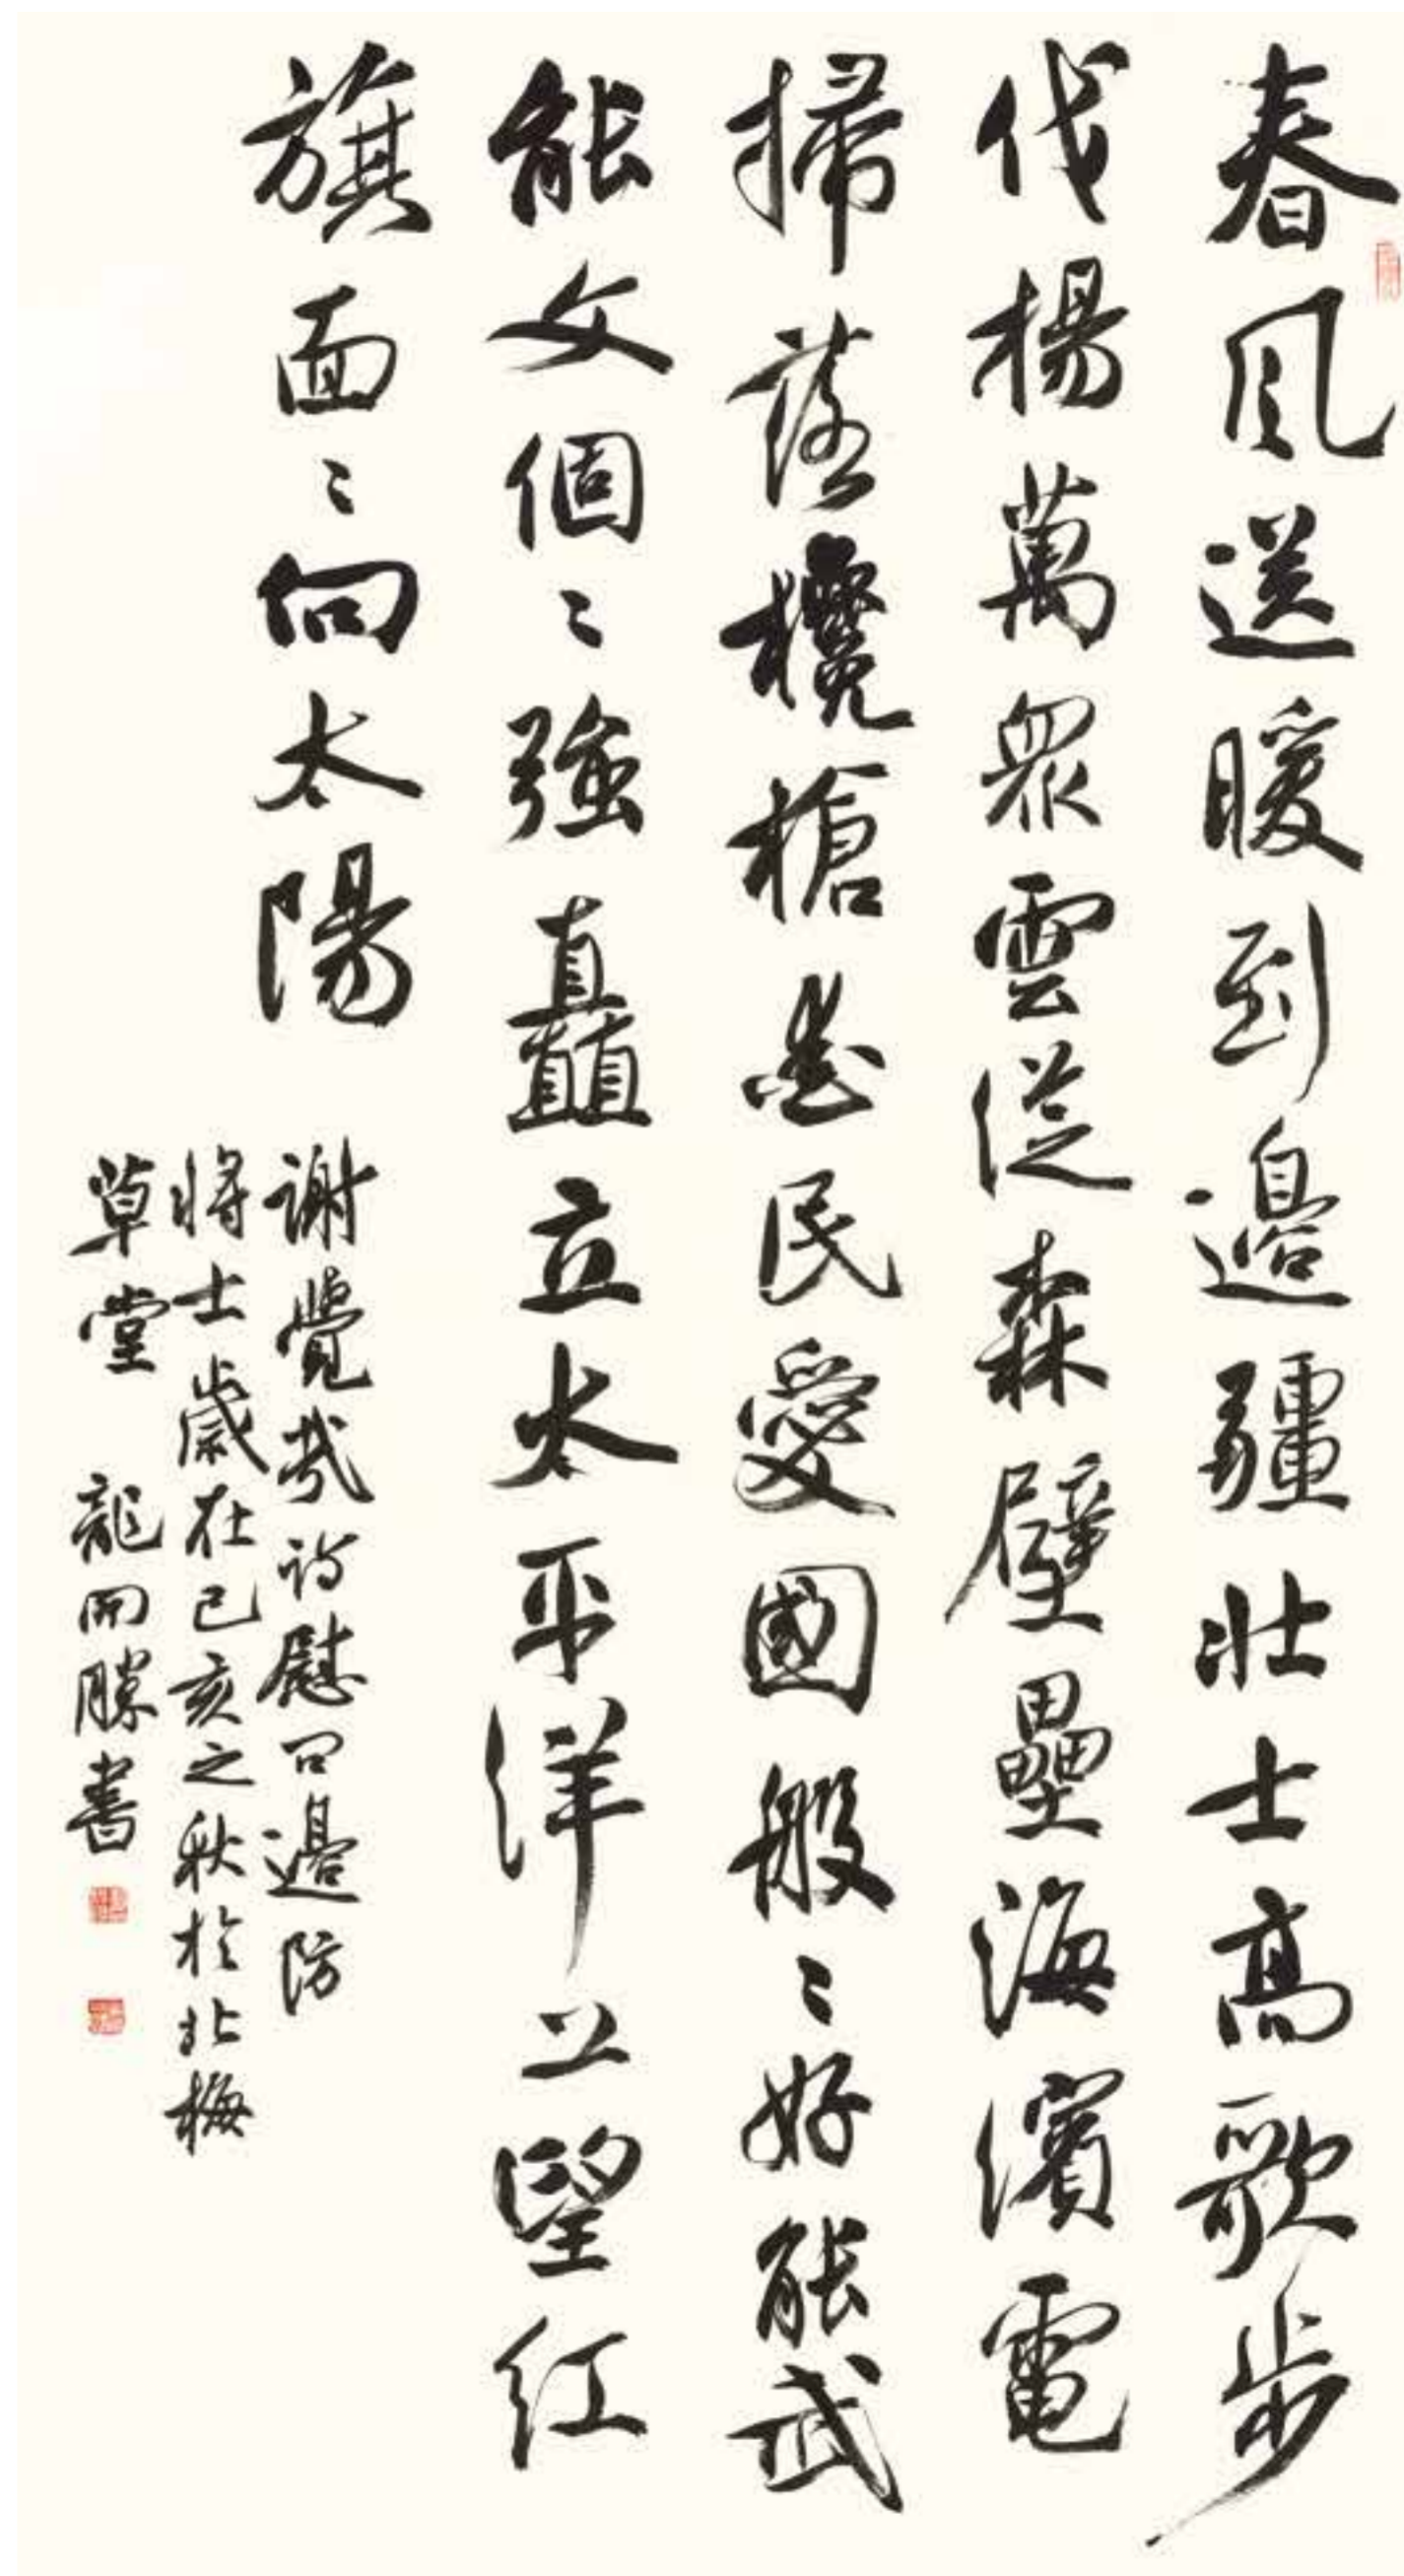 春風送暖到邊疆壯士高歌步
伐揚萬眾雲從森壁壘海濱電
掃落欃槍忠民愛國般〻好能武
能文個〻強矗立太平洋上望紅
旗面〻向太陽
謝覺哉詩慰問邊防
將士歲在己亥之秋於北梅
草堂 龍開勝書